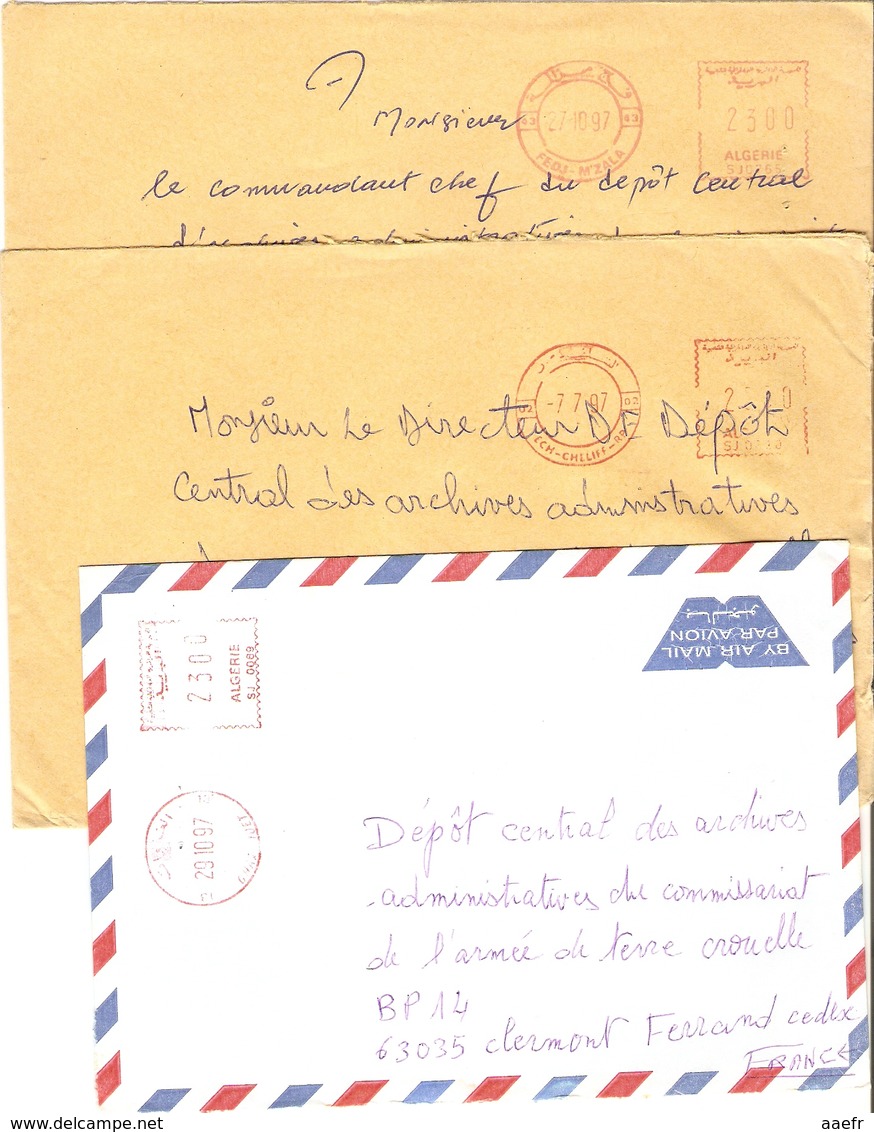 فج مزالة
63 27·10 97 63
FEDJ-M'ZALA
البريد
2300
ALGERIE
Monsieur
le commandant chef du depôt central
-7.7.97
02
البريد
SJ
Monsieur Le Directeur DE Dépôt
Central des archives administratives
البريد
2300
ALGERIE
SJ 0089
BY AIR MAIL
PAR AVION
29 10 97
Dépôt central des archives
administratives du commissariat
de l'armée de terre crouelle
BP 14
63035 clermont Ferrand cedex
FRANCE
www.delcampe.net
aaefr